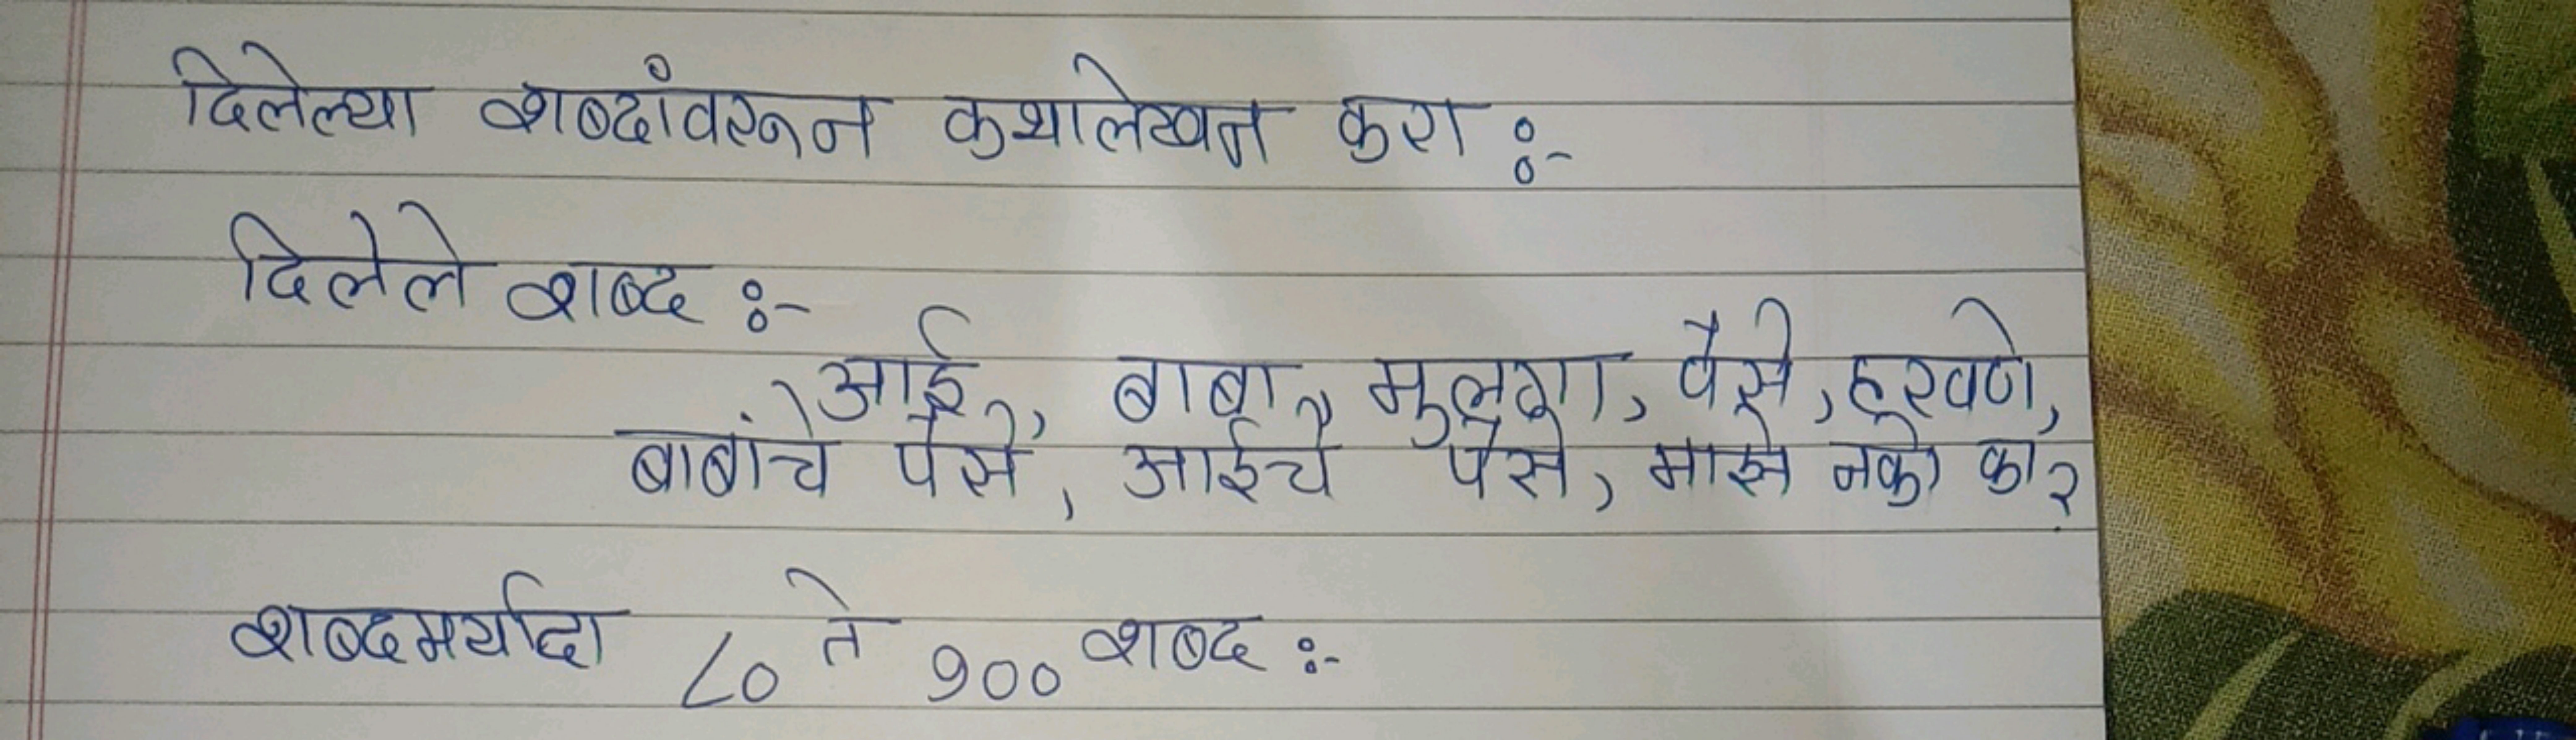 दिलेल्या शब्दांवरून कथालेखन करा :-
दिलेले शब्द :-
आई, बाबा, मुलगा, पैसे, हरवणे,
बाबांचे पैसे, आईचे पैसे, माझे नको का?
शब्दमर्यादा ८० ते १०० शब्द :-